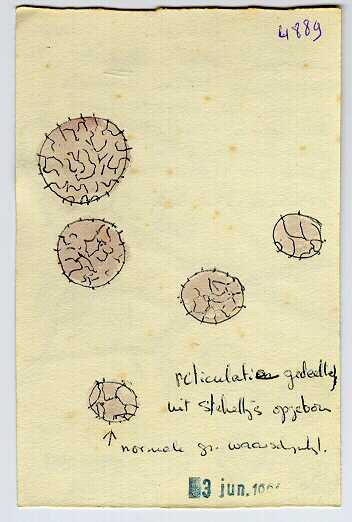 4889
reticulatie gedeeltel
uit stekeltjes opgebouw
normale gr. waarschijnl.
3 jun. 196